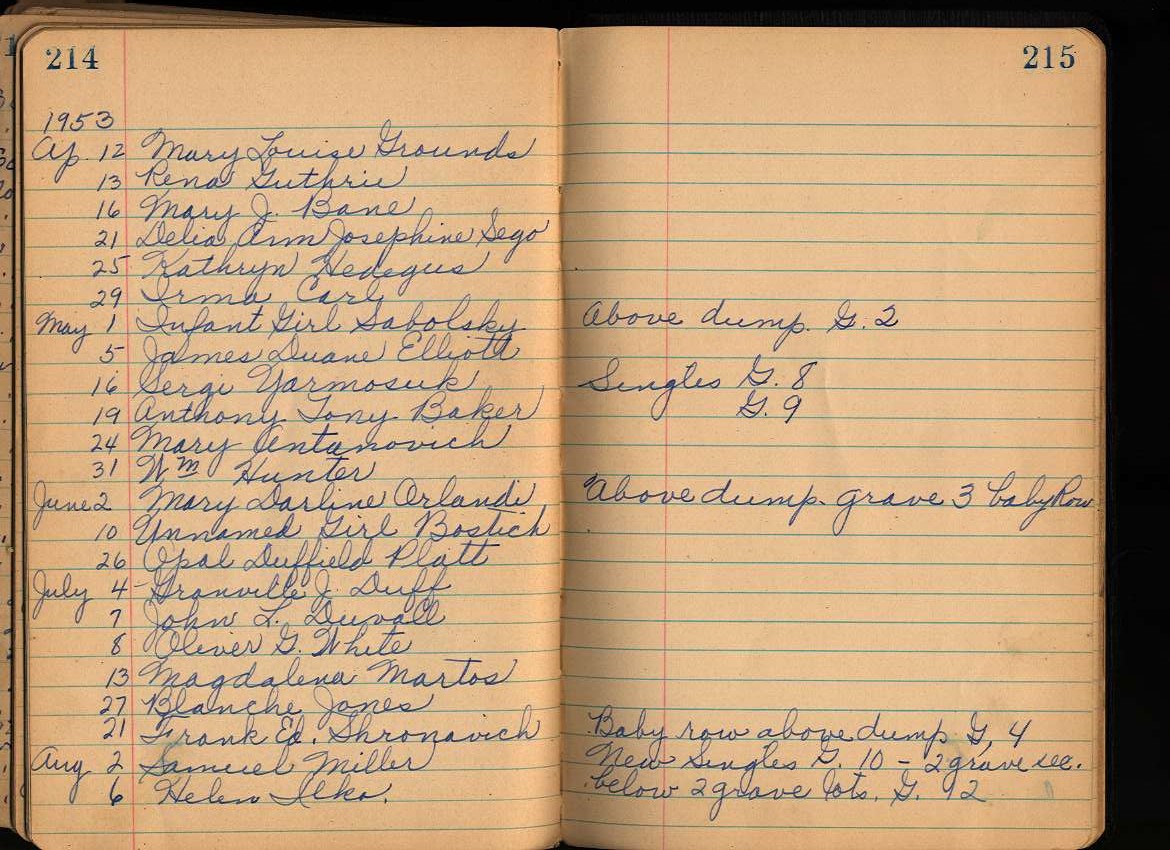 214
215
1953
Ap. 12 Mary Louise Grounds
13 Rena Guthrie
16 Mary J. Bane
21 Delia Ann Josephine Sego
25 Kathryn Hedegus
29 Irma Carl
May 1 Infant Girl Sabolsky Above dump. G. 2
5 James Duane Elliott
16 Sergi Yarmosuk Singles G. 8
19 Anthony Tony Baker G. 9
24 Mary Antanovich
31 Wm Hunter
June 2 Mary Darline Orlandi Above dump. grave 3 baby Row
10 Unnamed Girl Bostich
26 Opal Duffield Platt
July 4 Granville J. Duff
7 John L. Duvall
8 Oliver G. White
13 Magdalena Martos
27 Blanche Jones
21 Frank Ed. Shronavich Baby row above dump G. 4
Aug 2 Samuel Miller New Singles G. 10 - 2 grave sec.
6 Helen Ilko. below 2 grave lots. G. 92